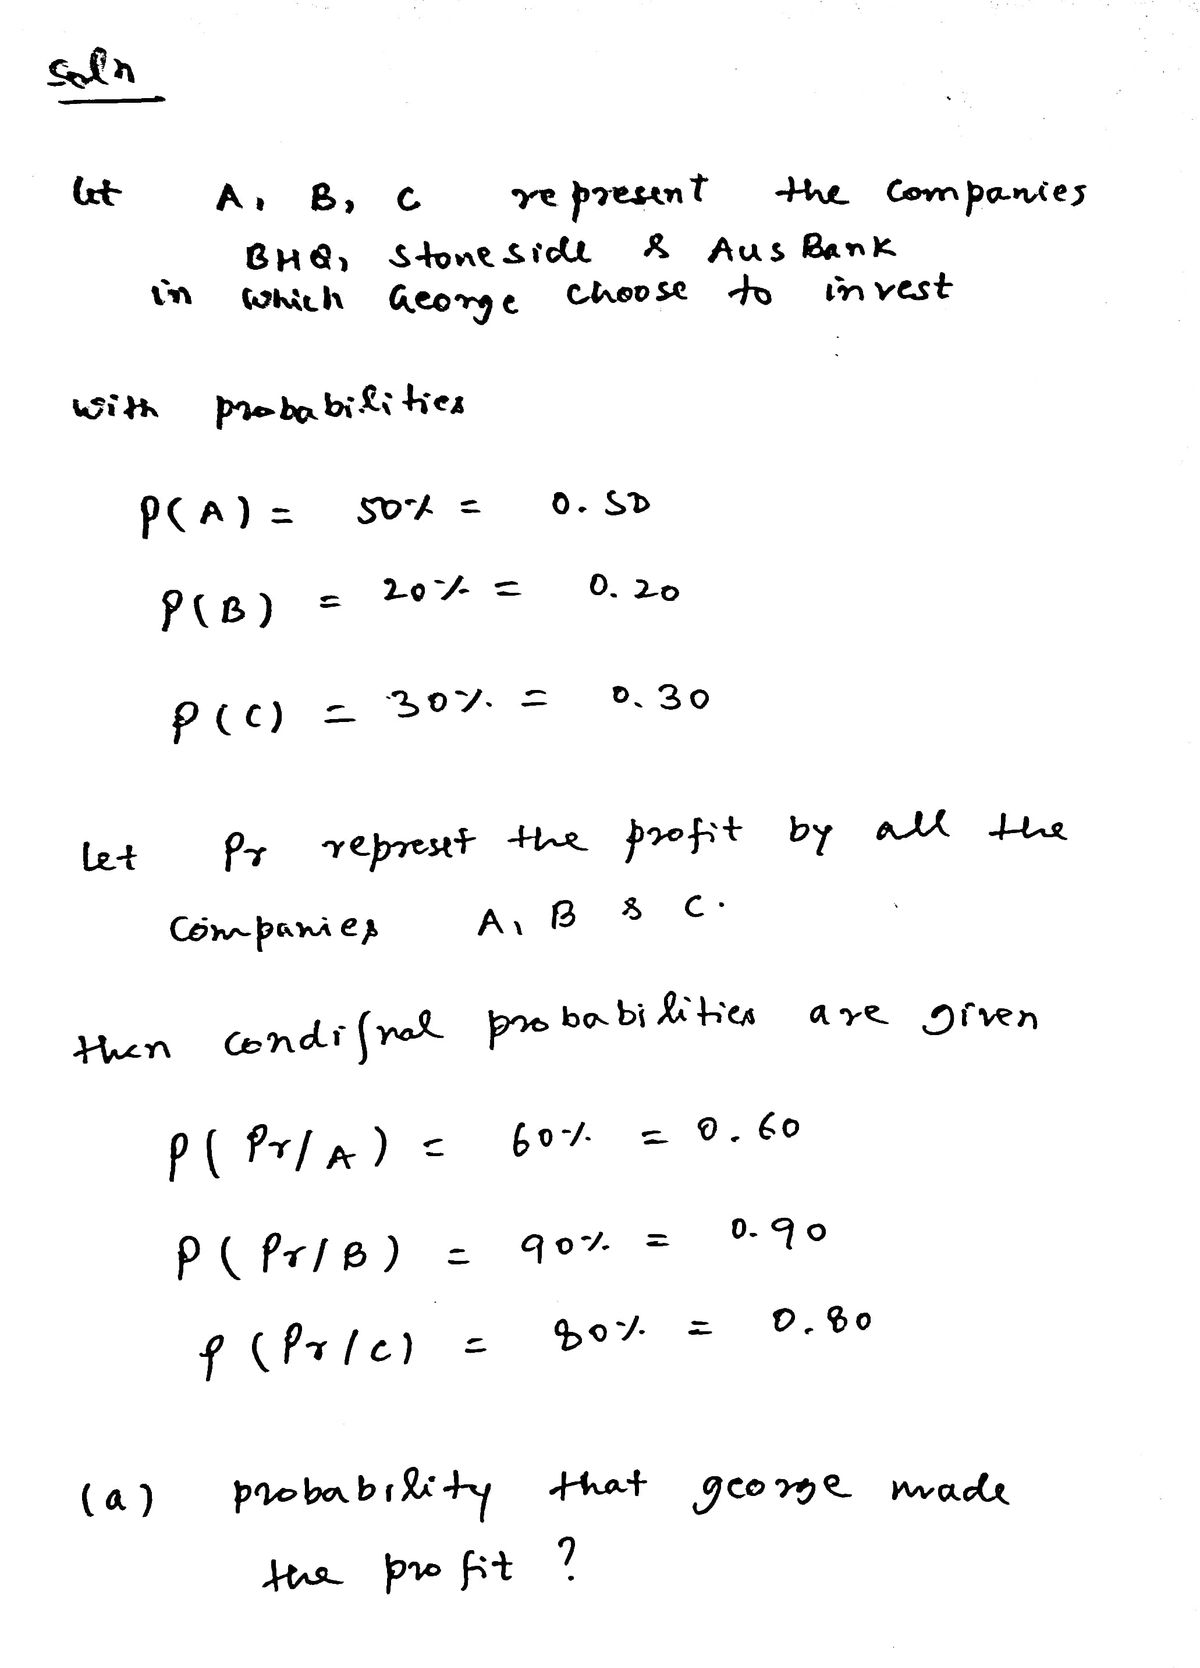 Soln
let A, B, C represent the Companies
BHQ, Stoneside & Aus Bank
in which George choose to invest
with probabilities
P(A) = 50% = 0.50
P(B) = 20% = 0.20
P(C) = 30% = 0.30
Let Pr represet the profit by all the
Companies A, B & C.
then condiſnal probabilities are given
P(Pr/A) = 60% = 0.60
P(Pr/B) = 90% = 0.90
P(Pr/C) = 80% = 0.80
(a) probability that george made
the profit ?